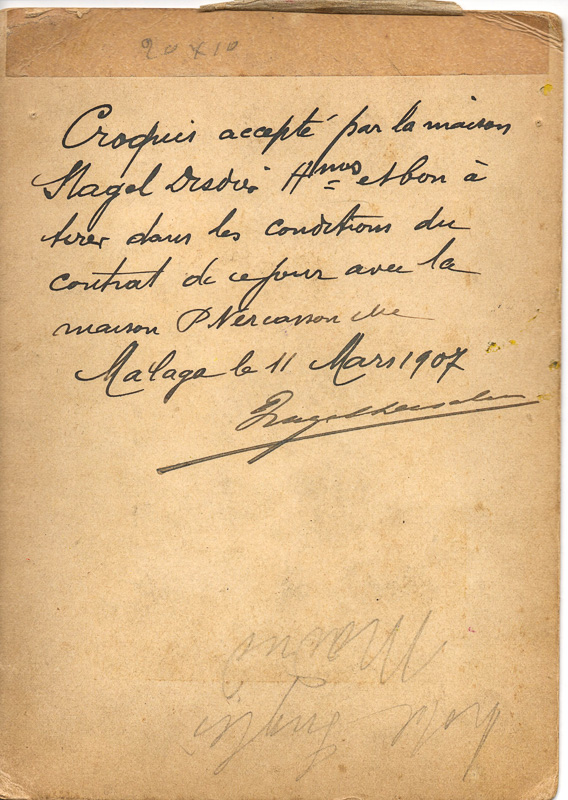 20 x 10
Croquis accepté par la maison
Nagel Disdier Hnos et bon à
tirer dans les conditions du
contrat de ce jour avec la
maison P Vercasson
Malaga le 11 Mars 1907